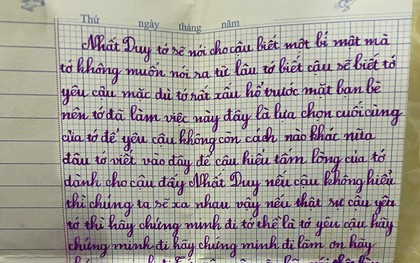 Thứ ngày tháng năm
Nhất Duy tớ sẽ nói cho cậu biết một bí mật mà
tớ không muốn nói ra từ lâu tớ biết cậu sẽ biết tớ
yêu cậu mặc dù tớ rất xấu hổ trước mặt bạn bè
nên tớ đã làm việc này đây là lựa chọn cuối cùng
của tớ để yêu cậu không còn cách nào khác nữa
đâu tớ viết vào đây để cậu hiểu tấm lòng của tớ
dành cho cậu đấy Nhất Duy nếu cậu không hiểu
thì chúng ta sẽ xa nhau vậy nếu thật sự cậu yêu
tớ thì hãy chứng minh đi tớ thề là tớ yêu cậu hãy
chứng minh đi hãy chứng minh đi làm ơn hãy